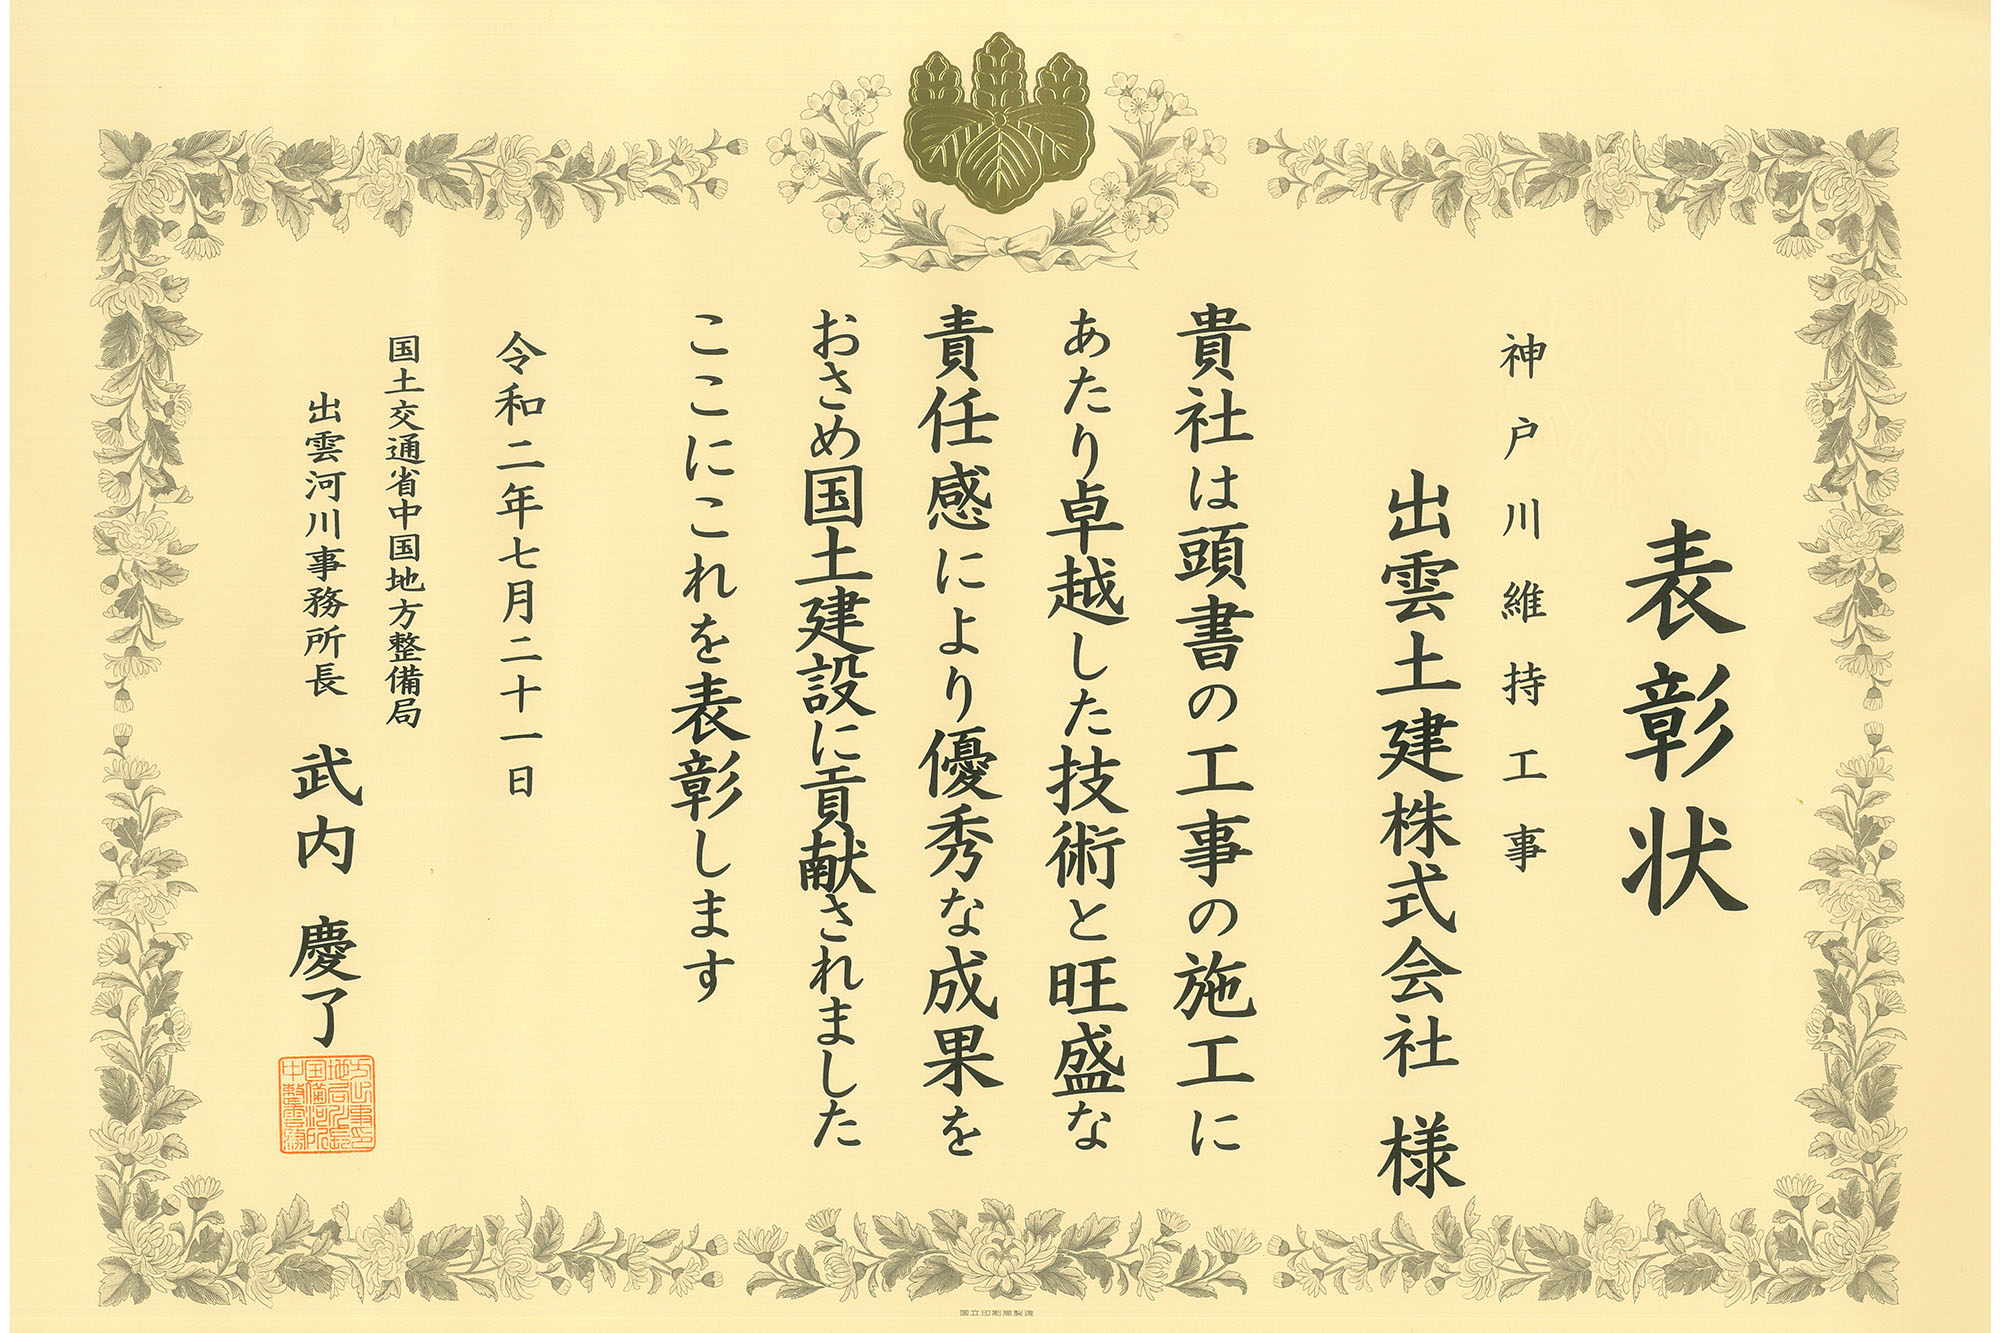 表彰状
神戸川維持工事
出雲土建株式会社 様
貴社は頭書の工事の施工に
あたり卓越した技術と旺盛な
責任感により優秀な成果を
おさめ国土建設に貢献されました
ここにこれを表彰します
令和二年七月二十一日
国土交通省中国地方整備局
出雲河川事務所長 武内 慶了
国立印刷局製造